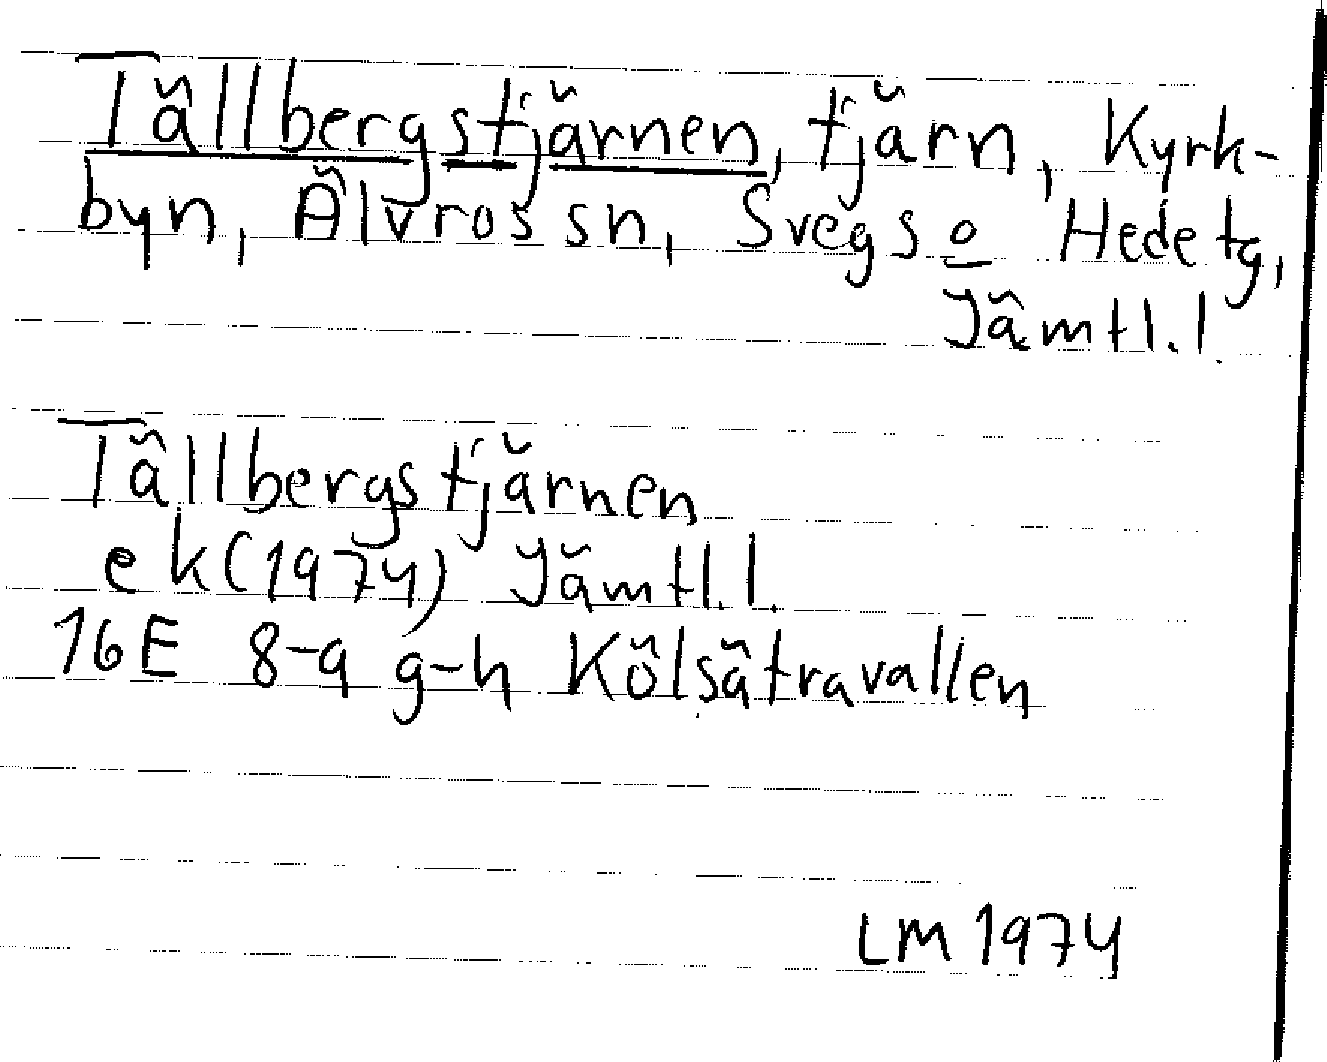 Tällbergstjärnen, tjärn, Kyrk-
byn, Älvros sn, Svegs o Hede tg,
Jämtl. l.
Tällbergstjärnen
ek (1974) Jämtl. l.
16E 8-9 g-h Kölsätravallen
LM 1974